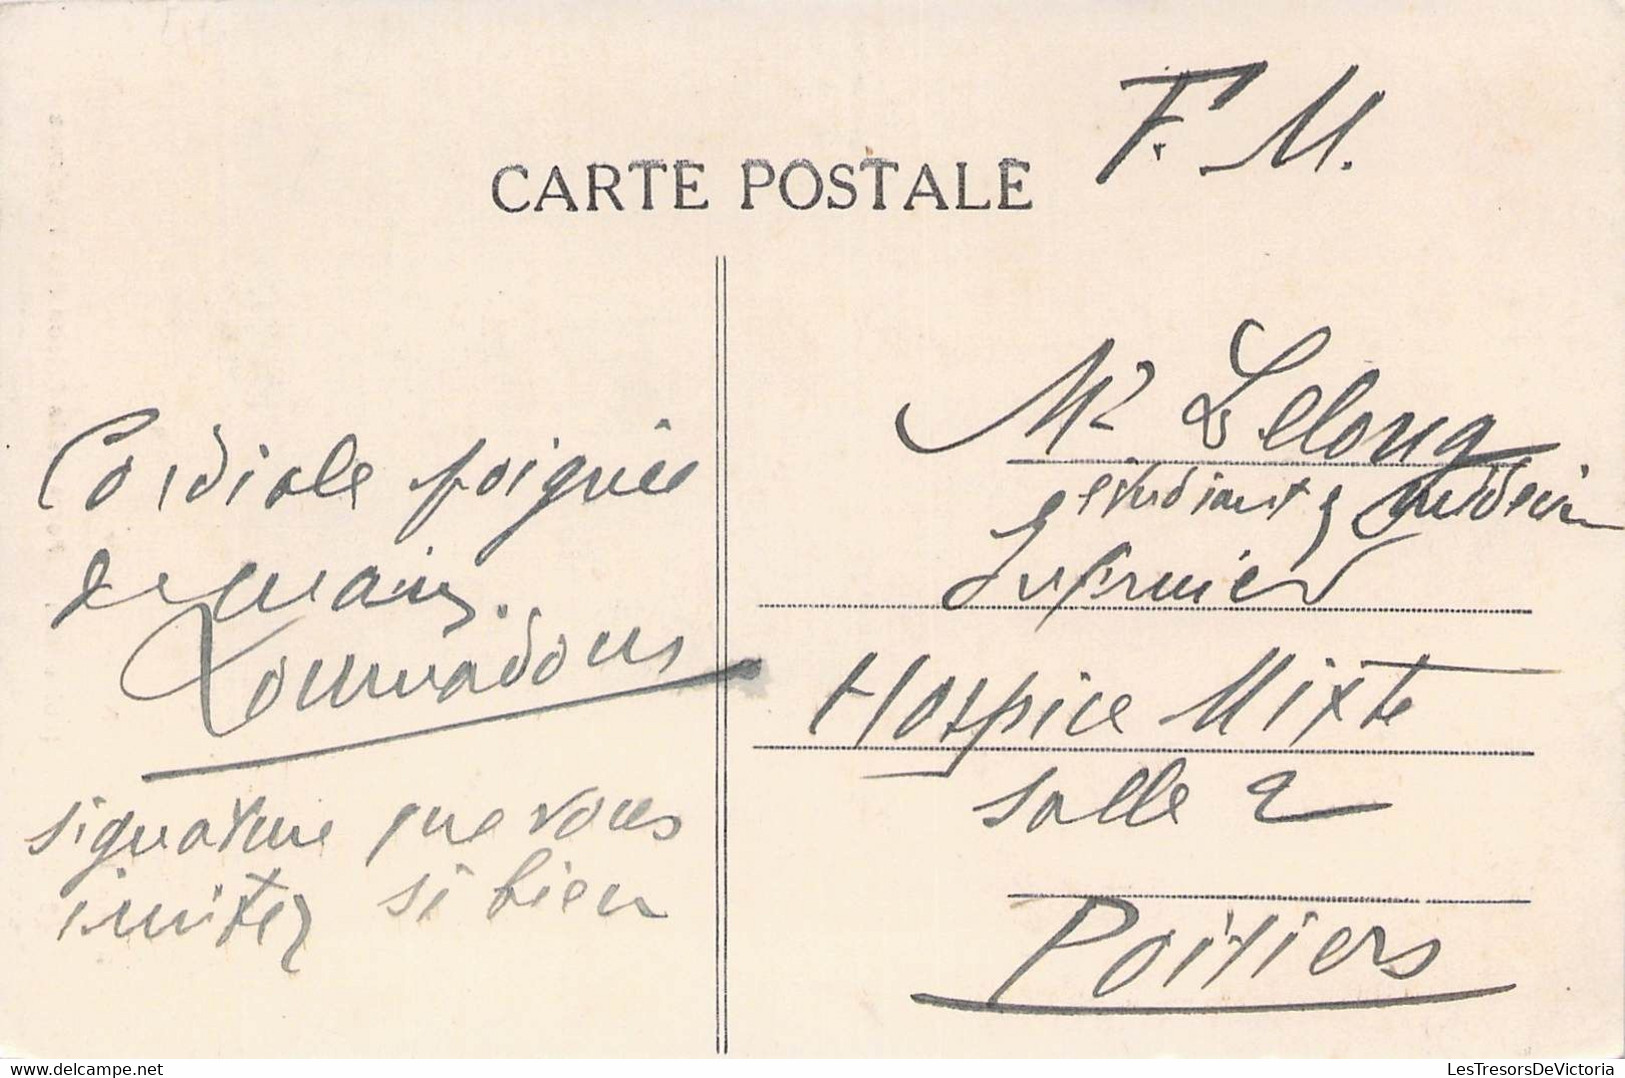 F. M.
CARTE POSTALE
Cordiale poignée
de main.
signature que vous
imitez si bien
Mr Lelong
étudiant en médecine
Infirmier
Hospice Mixte
Salle 2
Poitiers
LesTresorsDeVictoria
LesTresorsDeVictoria.com